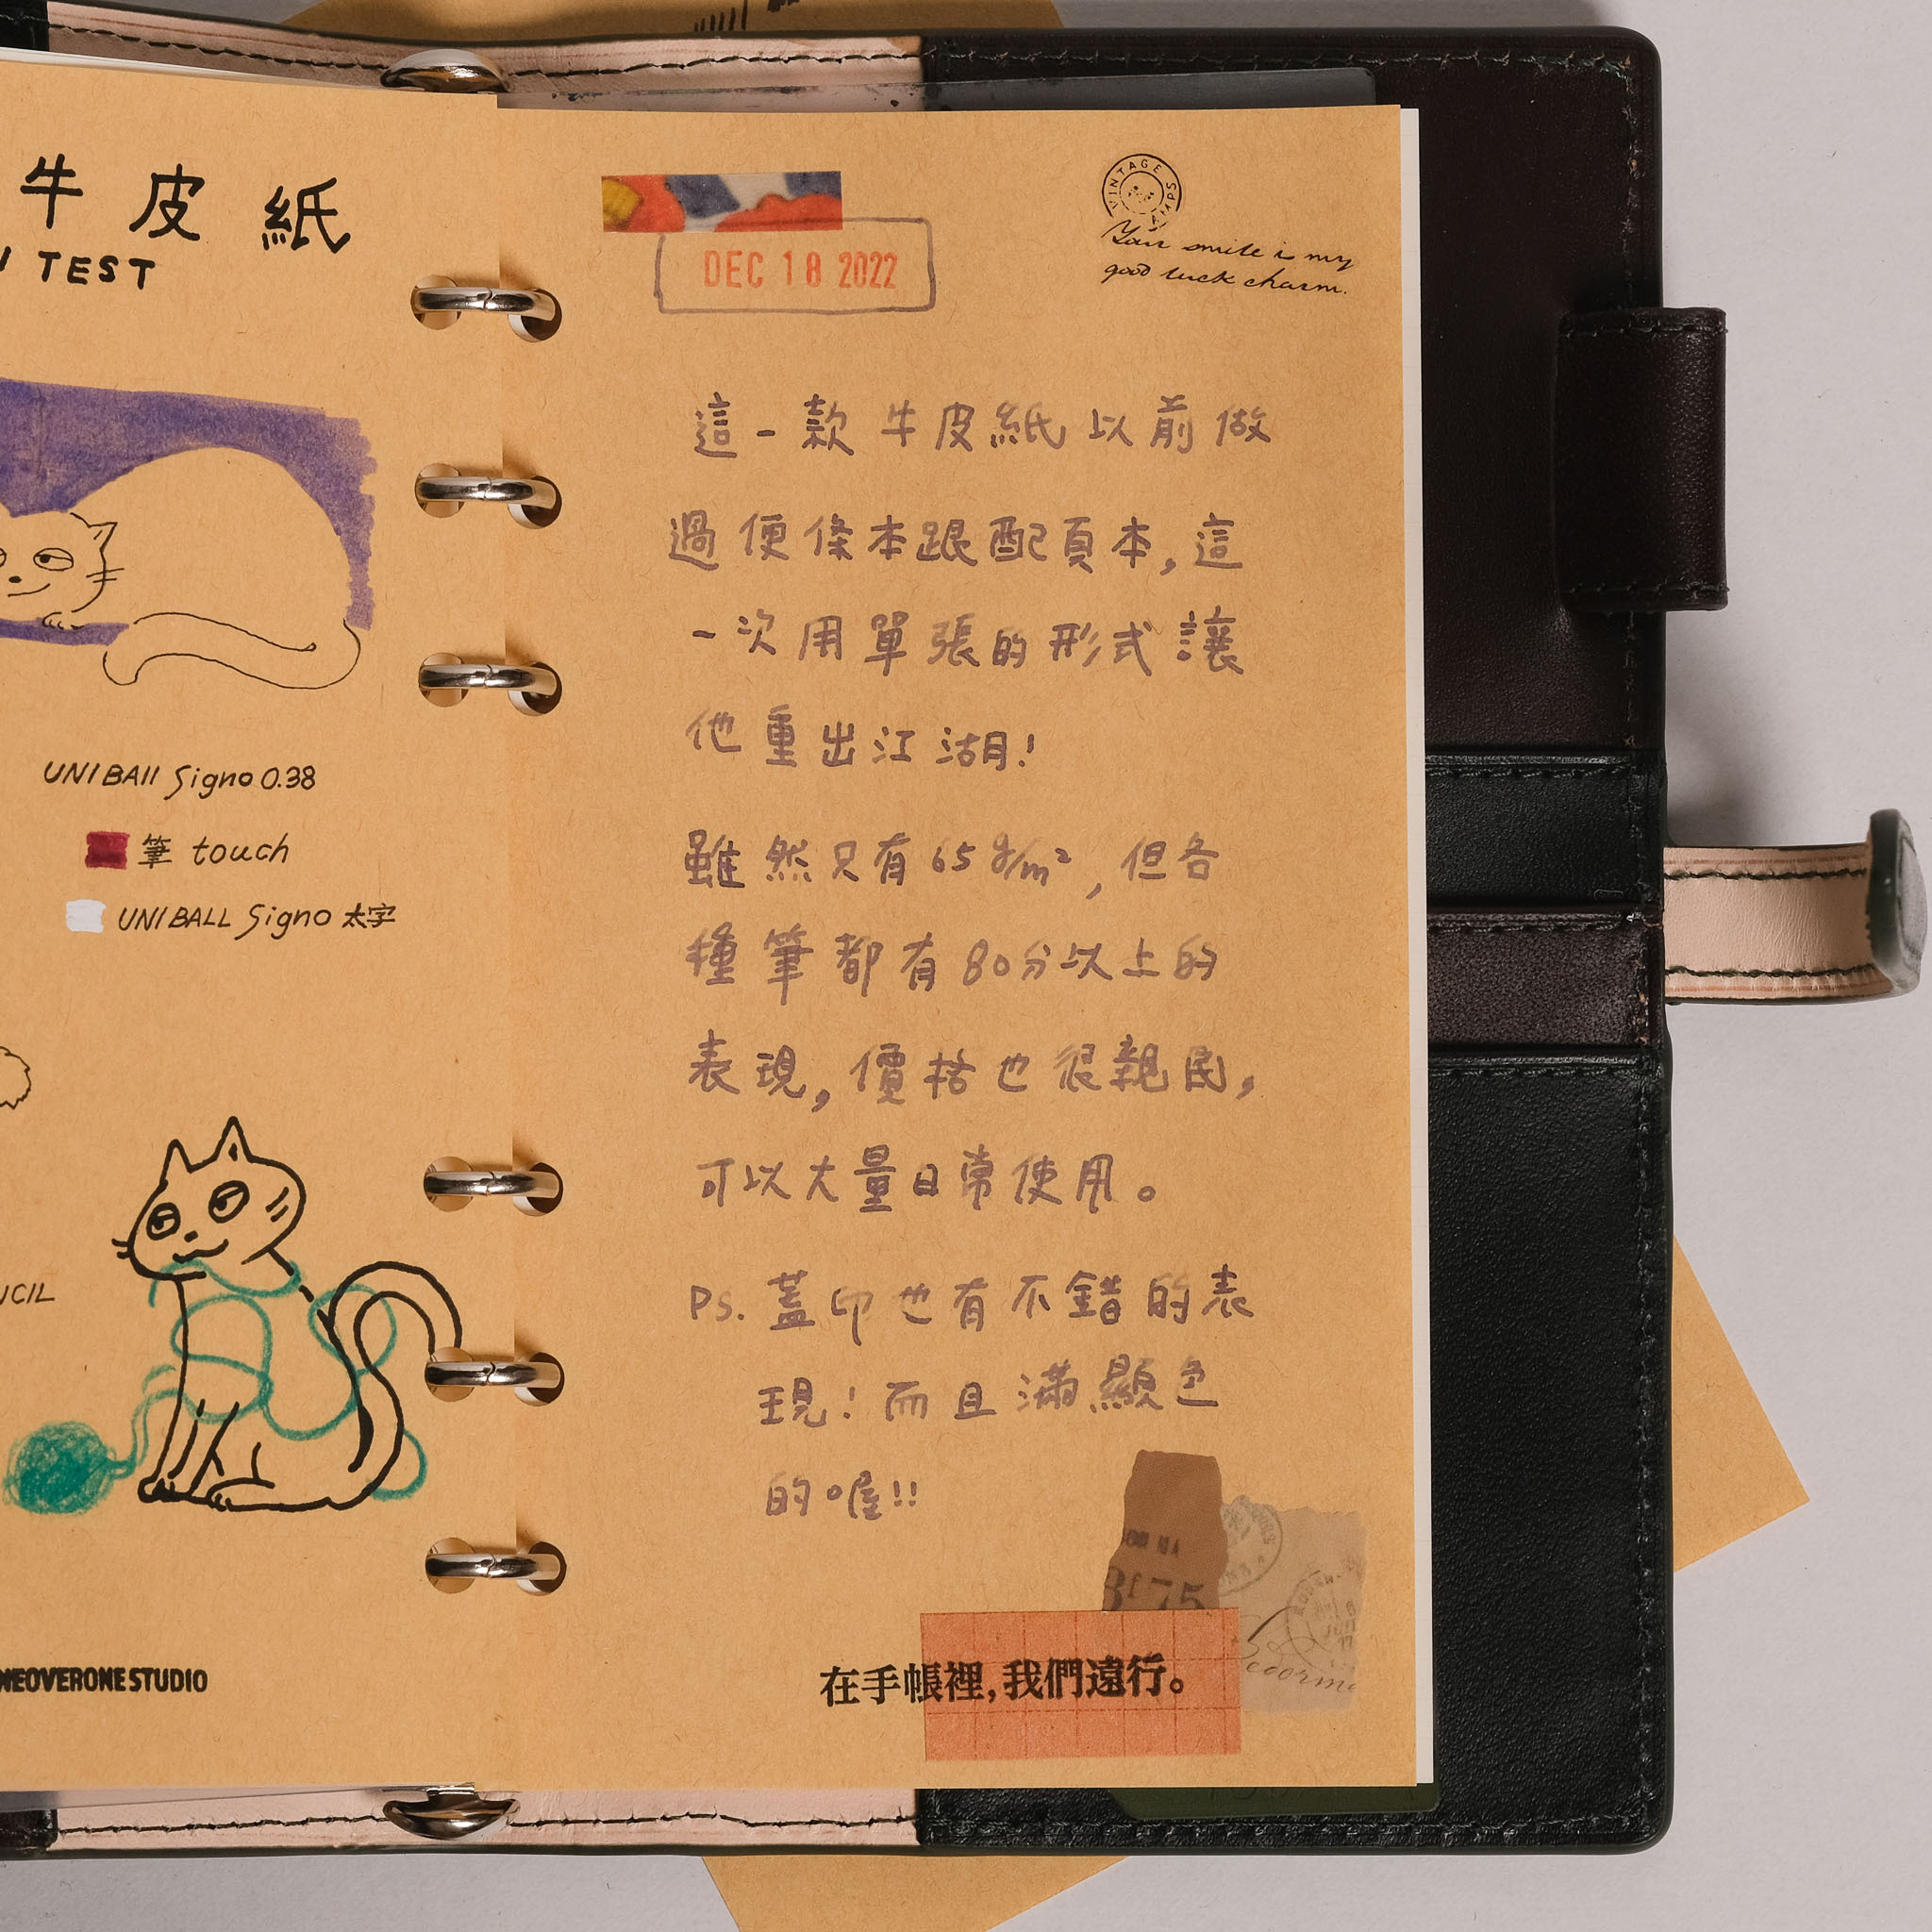 牛皮紙
TEST
UNIBAll Signo 0.38
筆 touch
UNIBALL Signo 太字
NCIL
NEOVERONE STUDIO
DEC 18 2022
VINTAGE STAMPS
Your smile is my
good luck charm.
這一款牛皮紙以前做
過便條本跟配頁本,這
一次用單張的形式讓
他重出江湖!
雖然只有65g/m²,但各
種筆都有80分以上的
表現,價格也很親民,
可以大量日常使用。
Ps.蓋印也有不錯的表
現!而且滿顯色
的喔!!
75
在手帳裡,我們遠行。